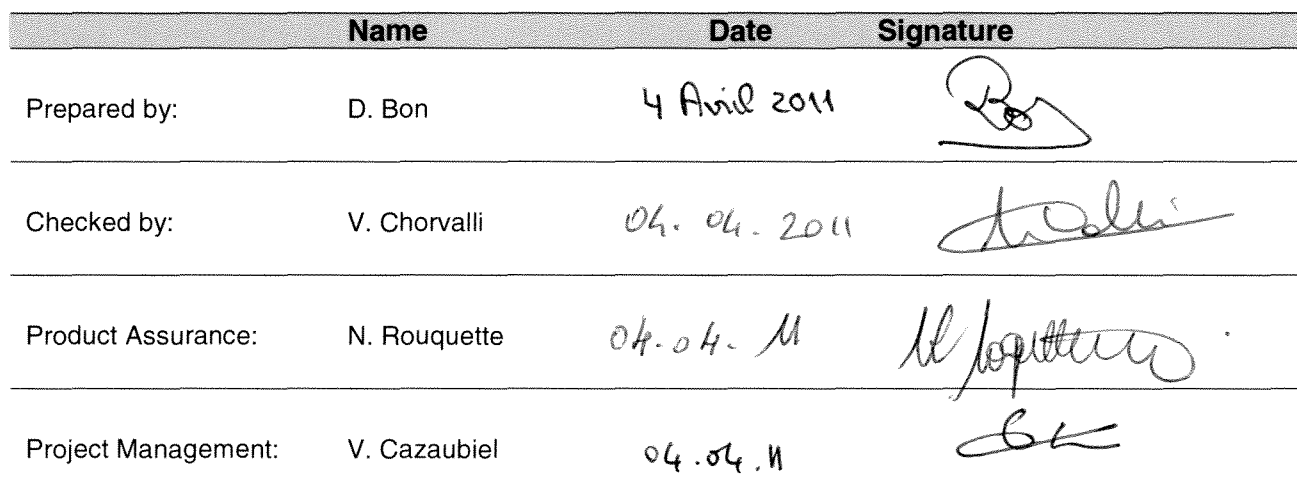 Name Date Signature
Prepared by: D. Bon 4 Avril 2011
Checked by: V. Chorvalli 04.04.2011
Product Assurance: N. Rouquette 04.04.11
Project Management: V. Cazaubiel 04.04.11